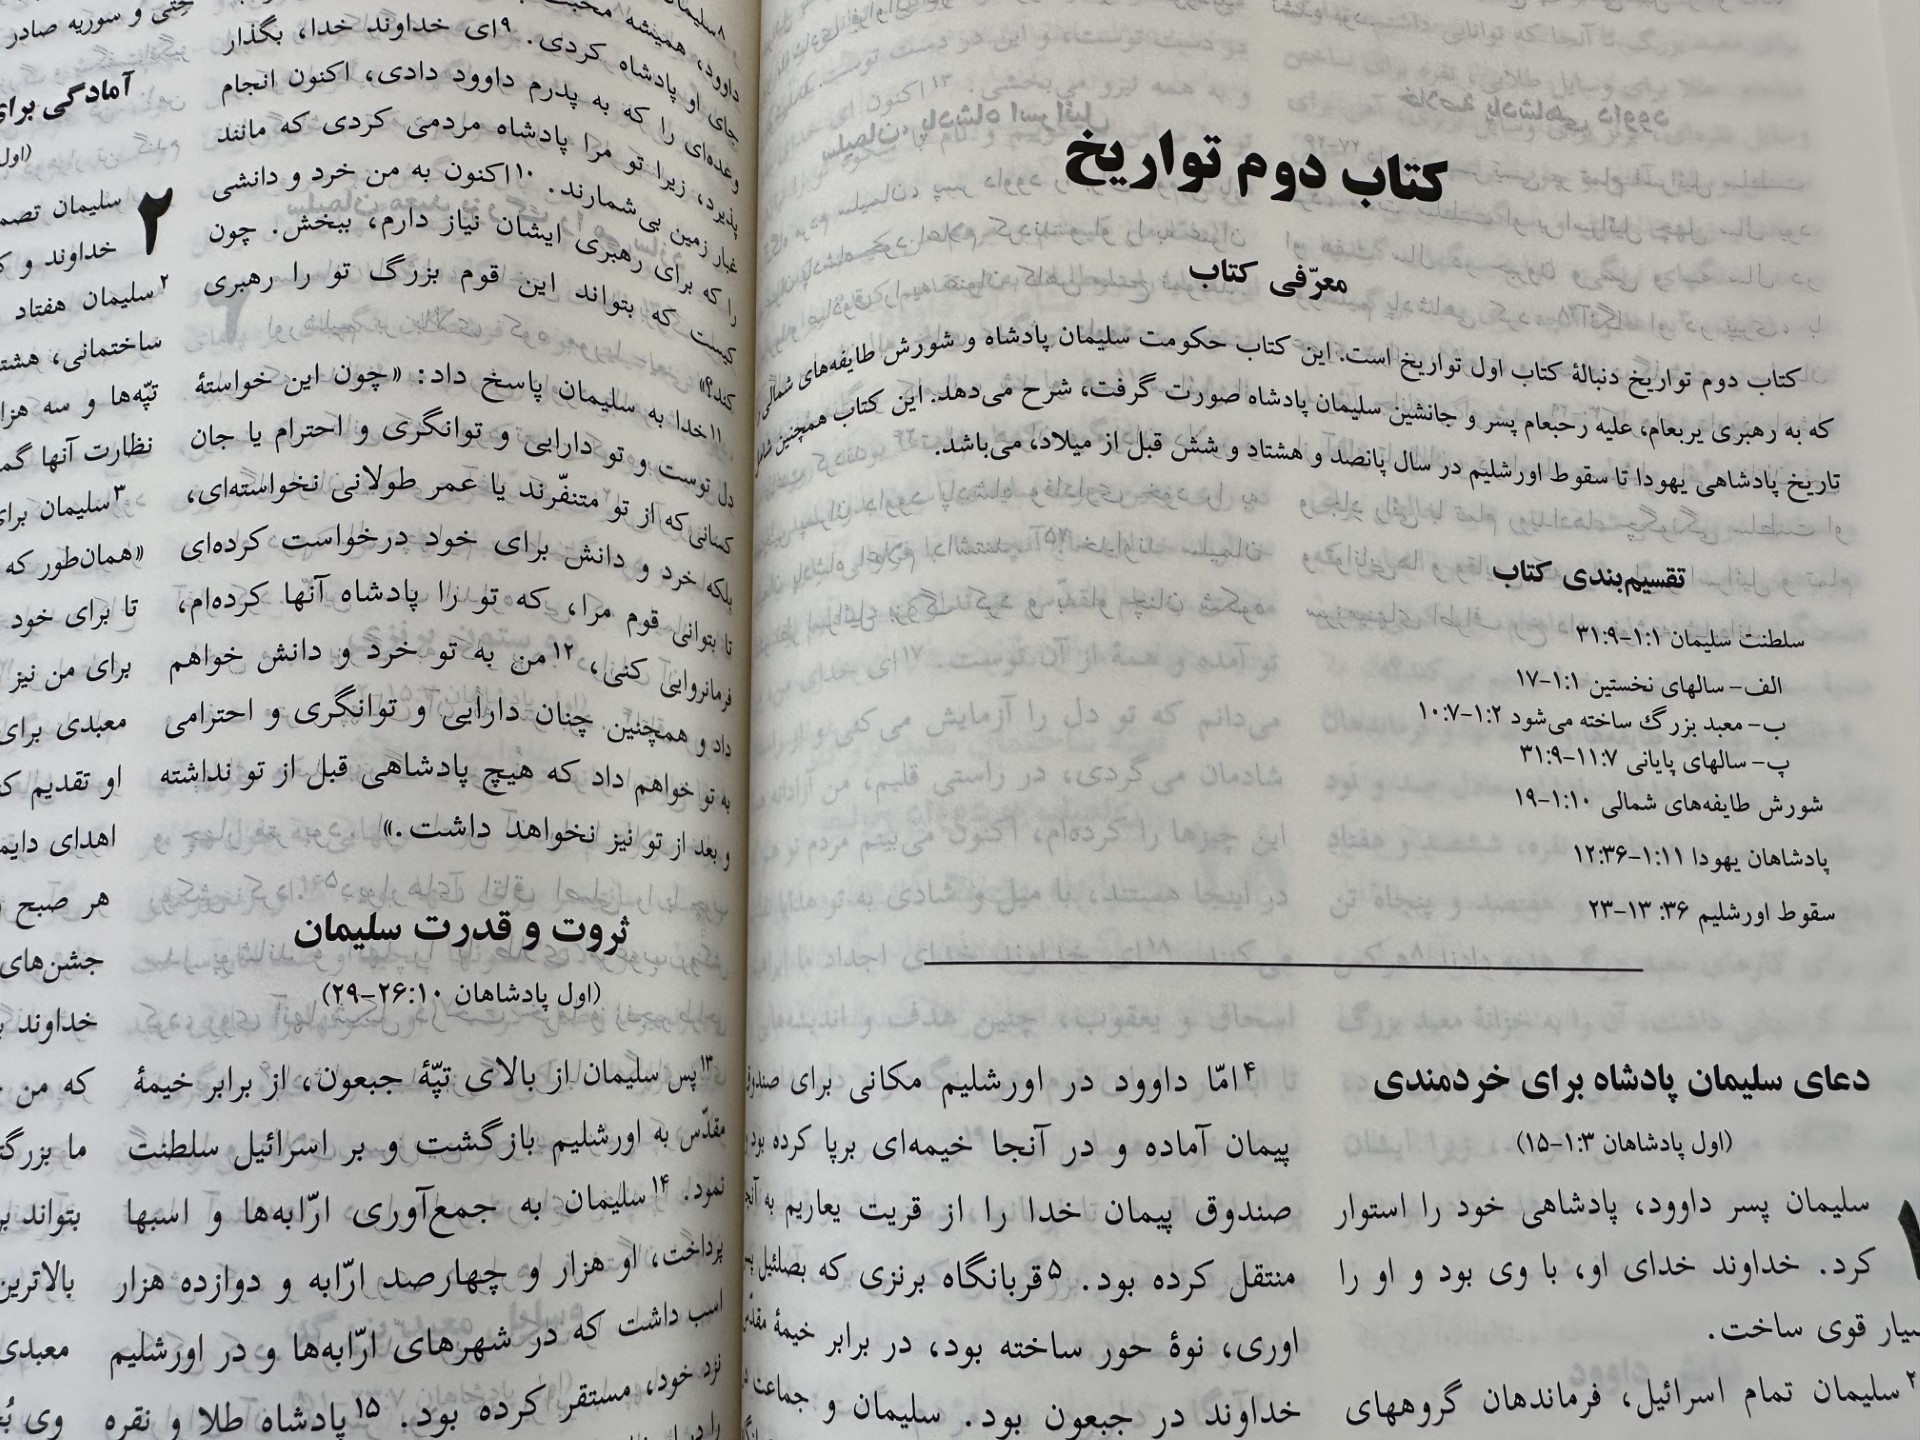 کتاب دوم تواریخ
معرّفی کتاب
کتاب دوم تواریخ دنبالهٔ کتاب اول تواریخ است. این کتاب حکومت سلیمان پادشاه و شورش طایفه‌های شمالی
که به رهبری یربعام، علیه رحبعام پسر و جانشین سلیمان پادشاه صورت گرفت، شرح می‌دهد. این کتاب همچنین شامل
تاریخ پادشاهی یهودا تا سقوط اورشلیم در سال پانصد و هشتاد و شش قبل از میلاد، می‌باشد.
تقسیم‌بندی کتاب
سلطنت سلیمان ۱:۱-۳۱:۹
الف- سالهای نخستین ۱:۱-۱۷
ب- معبد بزرگ ساخته می‌شود ۱:۲-۱۰:۷
پ- سالهای پایانی ۱۱:۷-۳۱:۹
شورش طایفه‌های شمالی ۱:۱۰-۱۹
پادشاهان یهودا ۱:۱۱-۱۲:۳۶
سقوط اورشلیم ۳۶: ۱۳-۲۳
دعای سلیمان پادشاه برای خردمندی
(اول پادشاهان ۱:۳-۱۵)
سلیمان پسر داوود، پادشاهی خود را استوار
کرد. خداوند خدای او، با وی بود و او را
قوی ساخت.
۲سلیمان تمام اسرائیل، فرماندهان گروههای
۴امّا داوود در اورشلیم مکانی برای صندوق
پیمان آماده و در آنجا خیمه‌ای برپا کرده بود
صندوق پیمان خدا را از قریت یعاریم به
منتقل کرده بود. ۵قربانگاه برنزی که بصلئیل
اوری، نوهٔ حور ساخته بود، در برابر خیمهٔ
خداوند در جبعون بود. سلیمان و جماعت
۸سلیمان
داوود، همیشه
جای او پادشاه کردی. ۹ای خداوند خدا، بگذار
وعده‌ای را که به پدرم داوود دادی، اکنون انجام
پذیرد، زیرا تو مرا پادشاه مردمی کردی که مانند
غبار زمین بی‌شمارند. ۱۰اکنون به من خرد و دانشی
را که برای رهبری ایشان نیاز دارم، ببخش. چون
کیست که بتواند این قوم بزرگ تو را رهبری
کند؟»
۱۱خدا به سلیمان پاسخ داد: «چون این خواستهٔ
دل توست و تو دارایی و توانگری و احترام یا جان
کسانی که از تو متنفّرند یا عمر طولانی نخواسته‌ای،
بلکه خرد و دانش برای خود درخواست کرده‌ای
تا بتوانی قوم مرا، که تو را پادشاه آنها کرده‌ام،
فرمانروایی کنی، ۱۲من به تو خرد و دانش خواهم
داد و همچنین چنان دارایی و توانگری و احترامی
به تو خواهم داد که هیچ پادشاهی قبل از تو نداشته
و بعد از تو نیز نخواهد داشت.»
ثروت و قدرت سلیمان
(اول پادشاهان ۲۶:۱۰-۲۹)
۱۳پس سلیمان از بالای تپّهٔ جبعون، از برابر خیمهٔ
مقدّس به اورشلیم بازگشت و بر اسرائیل سلطنت
نمود. ۱۴سلیمان به جمع‌آوری ارّابه‌ها و اسبها
پرداخت، او هزار و چهارصد ارّابه و دوازده هزار
اسب داشت که در شهرهای ارّابه‌ها و در اورشلیم
نزد خود، مستقر کرده بود. ۱۵پادشاه طلا و نقره
حِتّی و سوریه صادر
آمادگی برای
(اول
۲ سلیمان
خداوند و
۲سلیمان هفتاد
ساختمانی،
تپّه‌ها و سه
نظارت آنها
۳سلیمان برای
«همان‌طور که
تا برای خود
برای من نیز
معبدی برای
او تقدیم
اهدای
هر صبح
جشن‌های
خداوند
که من
ما
بتواند
بالاترین
معبدی
وی